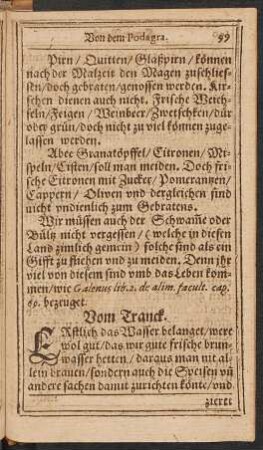 Von dem Podagra. 99
Pirn / Quitten / Glaßpirn / können
nach der Malzeit den Magen zuschlies-
sen / doch gebraten / genossen werden. Kir-
schen dienen auch nicht. Frische Weich-
seln / Feigen / Weinbeer / Zwetschken / dür
oder grün / doch nicht zu viel können zuge-
lassen werden.
Aber Granatöpffel / Citronen / Mi-
speln / Cisten / soll man meiden. Doch fri-
sche Citronen mit Zucker / Pomerantzen /
Cappern / Oliven vnd dergleichen sind
nicht vndienlich zum Gebratens.
Wir müssen auch der Schwam̃e oder
Bültz nicht vergessen / (welche in diesen
Land zimlich gemein) solche sind als ein
Gifft zu fliehen vnd zu meiden. Denn jhr
viel von diesem sind vmb das Leben kom-
men / wie Galenus lib. 2. de alim. facult. cap.
69. bezeuget.
Vom Tranck.
ERstlich das Wasser belanget / were
wol gut / das wir gute frische brun-
wasser hetten / daraus man nit al-
lein brauen / sondern auch die Speisen vñ
andere sachen damit zurichten könte / vnd